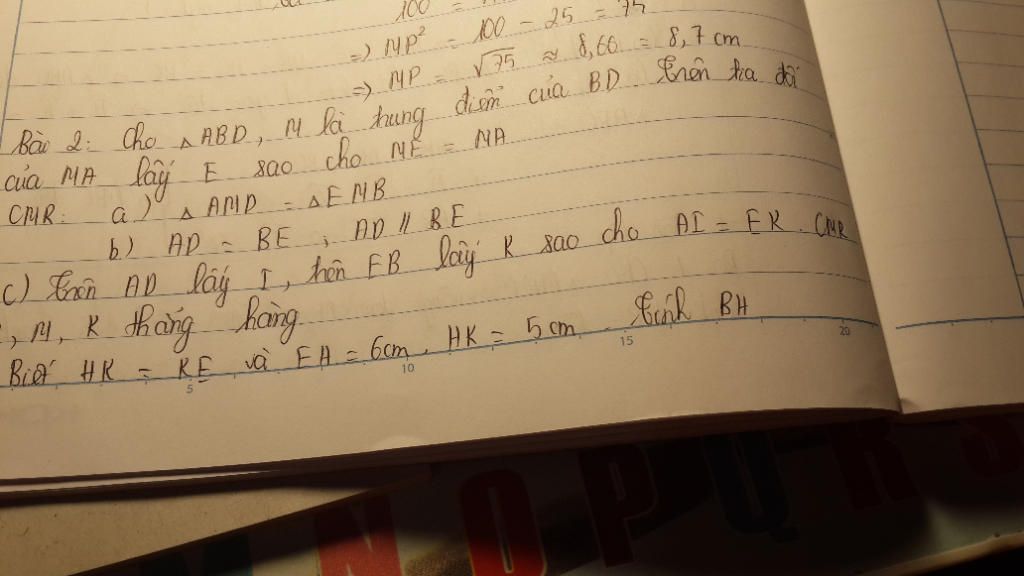 100 =
=) MP² = 100 - 25 = 75
=) MP = √75 ≈ 8,66 = 8,7 cm
Bài 2: Cho △ABD, M là trung điểm của BD trên tia đối
của MA lấy E sao cho ME = MA
CMR: a) △AMD = △EMB
b) AD = BE ; AD // BE
c) Trên AD lấy I, trên EB lấy K sao cho AI = EK. CMR
, M, K thẳng hàng
Biết HK = KE và EH = 6cm, HK = 5cm. Tính BH
5 10 15 20
N O P Q R S